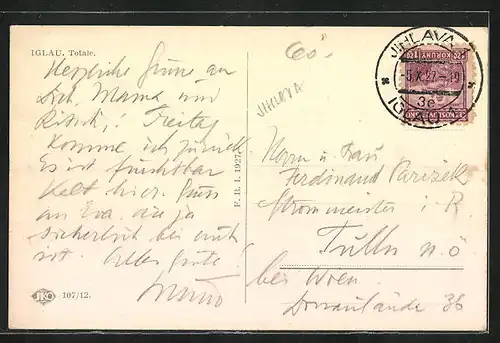 IGLAU. Totale.
Herzliche Grüsse an
Dich, Mama und
Freitag
komme ich zurück
Es ist furchtbar
kalt hier. Gruss
an Eva die ja
sicherlich bei euch
ist. Alles Gute!
107/12.
F. R. I. 1927.
60.-
JIHLAVA
JIHLAVA
-5.X.27.-19
3e
IGLAU
Herrn u Frau
Ferdinand Parizek
Strommeister i. R.
Tulln n.ö
bei Wien
Donaulände 36